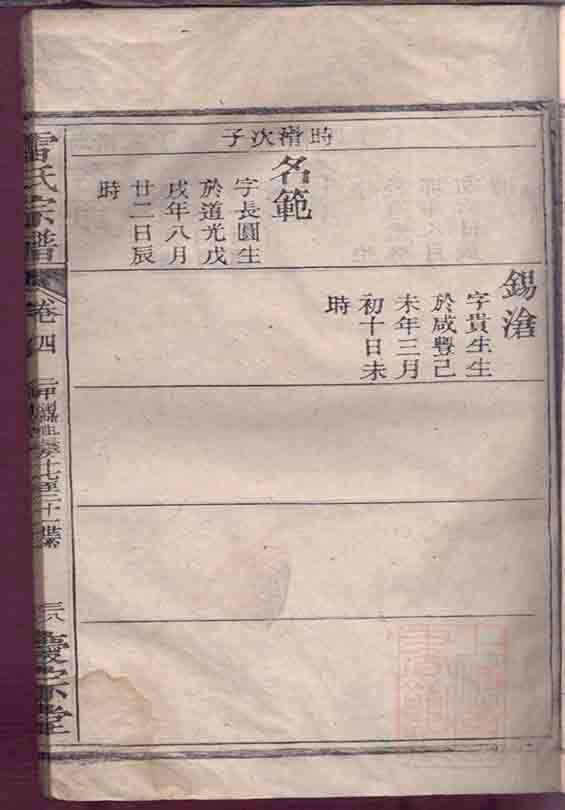 錫滄
字貴生生
於咸豐己
未年三月
初十日未
時
時濳次子
名範
字長圓生
於道光戊
戌年八月
廿二日辰
時
雷氏宗譜
卷四
三八